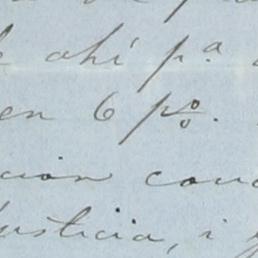 ahí p.ª
en 6 p%.
cion con
Justicia, i